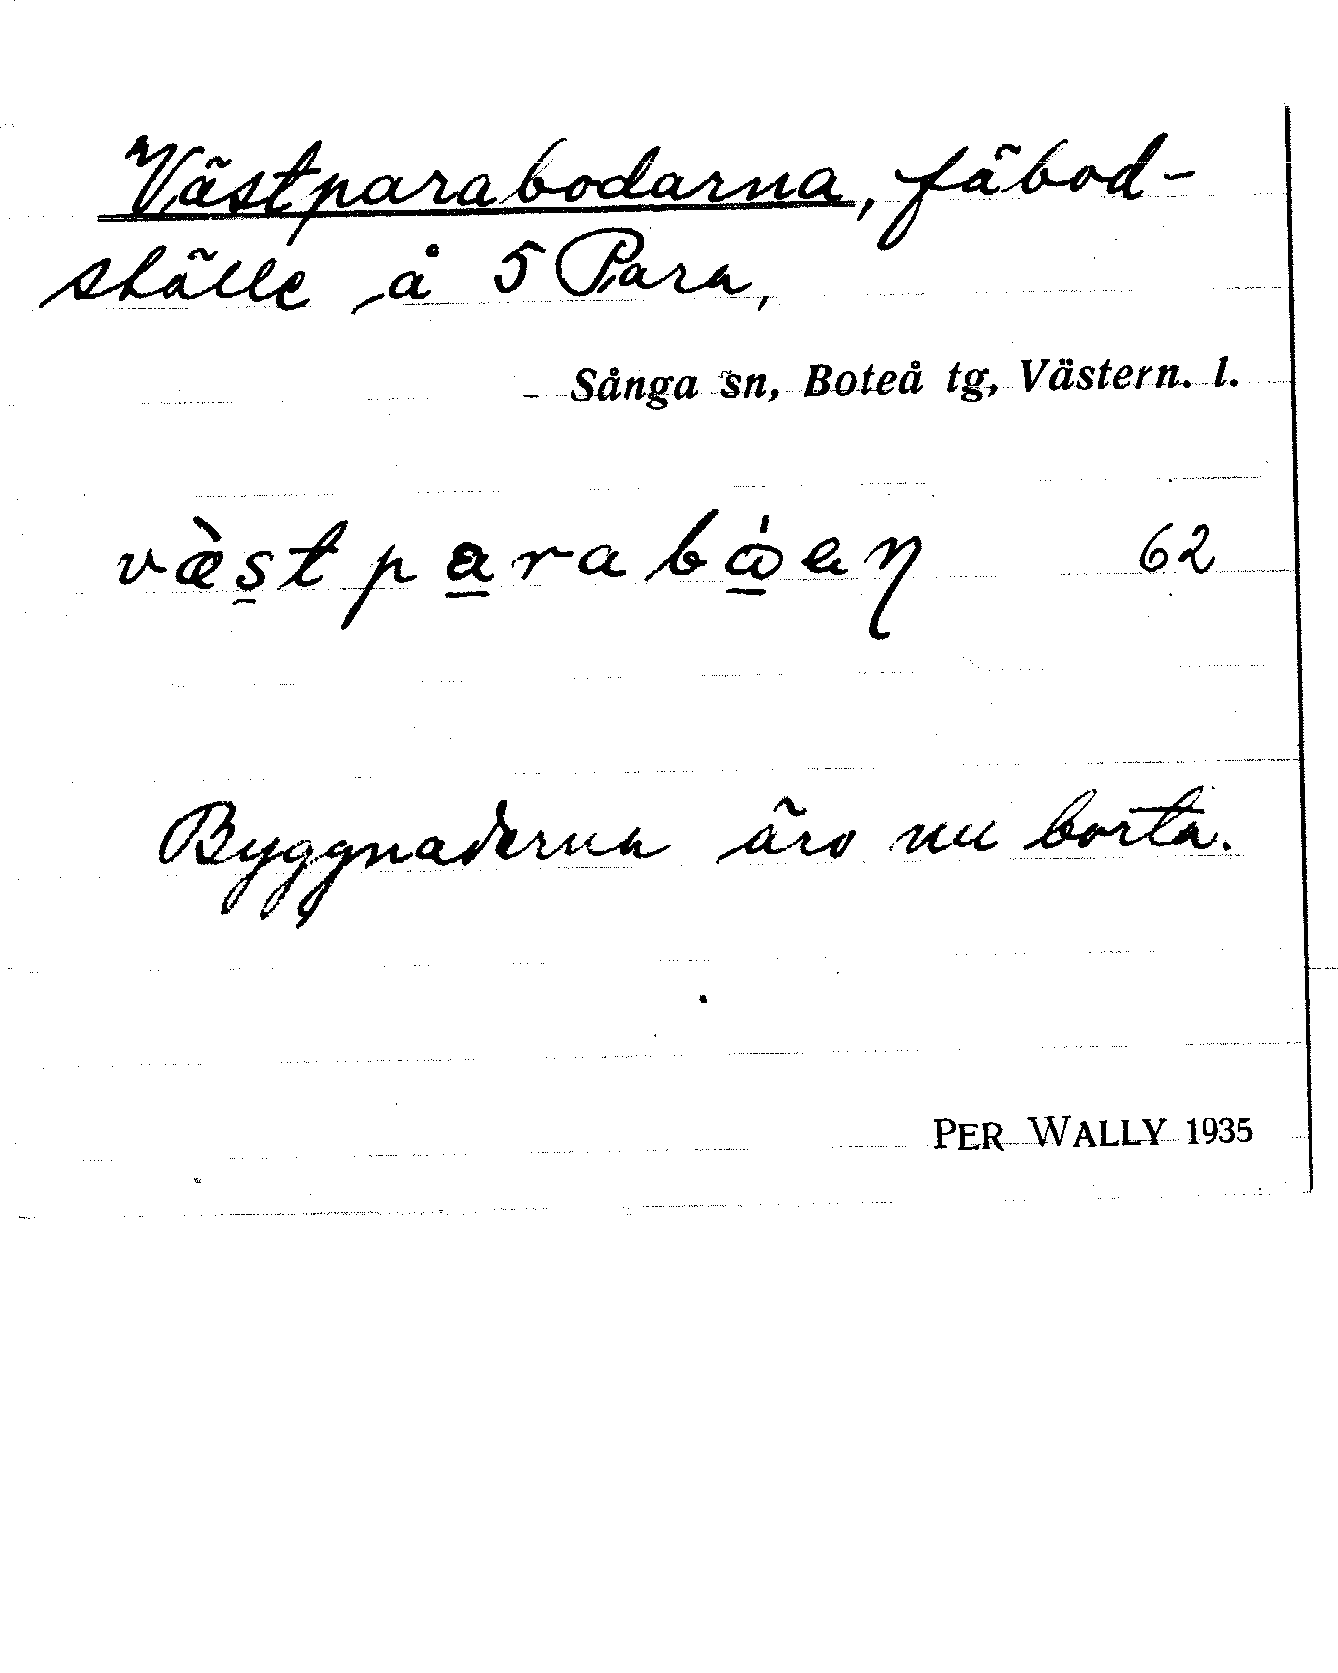 Västparabodarna, fäbod-
ställe å 5 Para,
Sånga sn, Boteå tg, Västern. l.
væ̀s̲tpa̲rabώ̲aη 62
Byggnaderna äro nu borta.
PER WALLY 1935